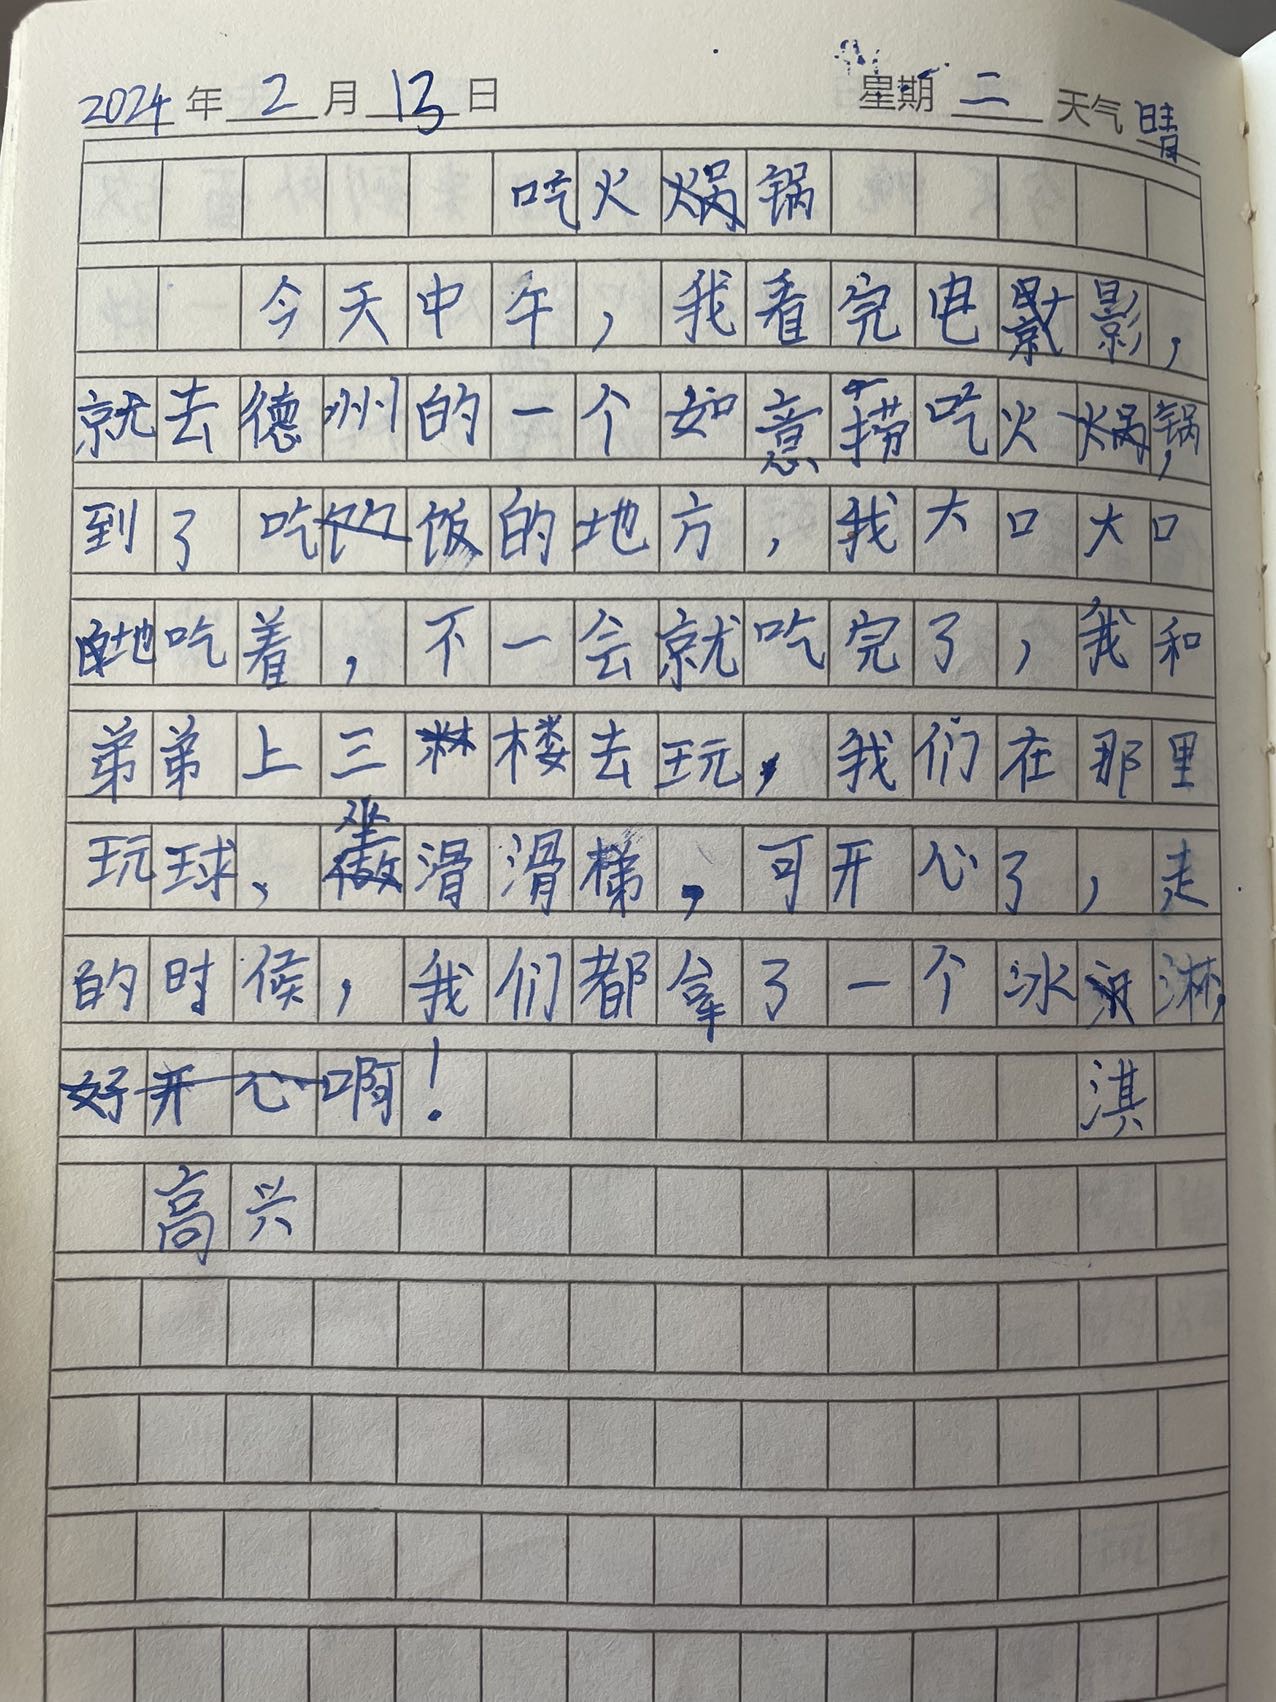 2024年2月13日 星期二 天气晴
吃火锅
今天中午，我看完电影，
就去德州的一个如意捞吃火锅，
到了吃饭的地方，我大口大口
地吃着，不一会就吃完了，我和
弟弟上三楼去玩，我们在那里
玩球、坐滑滑梯，可开心了，走
的时候，我们都拿了一个冰淋，
好开心啊！ 淇
高兴